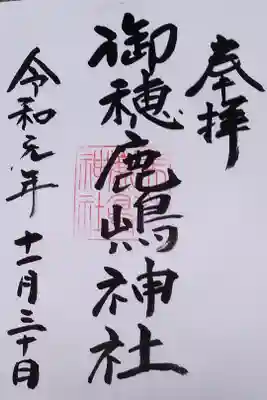 奉拝
御穂鹿嶋神社
令和元年 十一月三十日